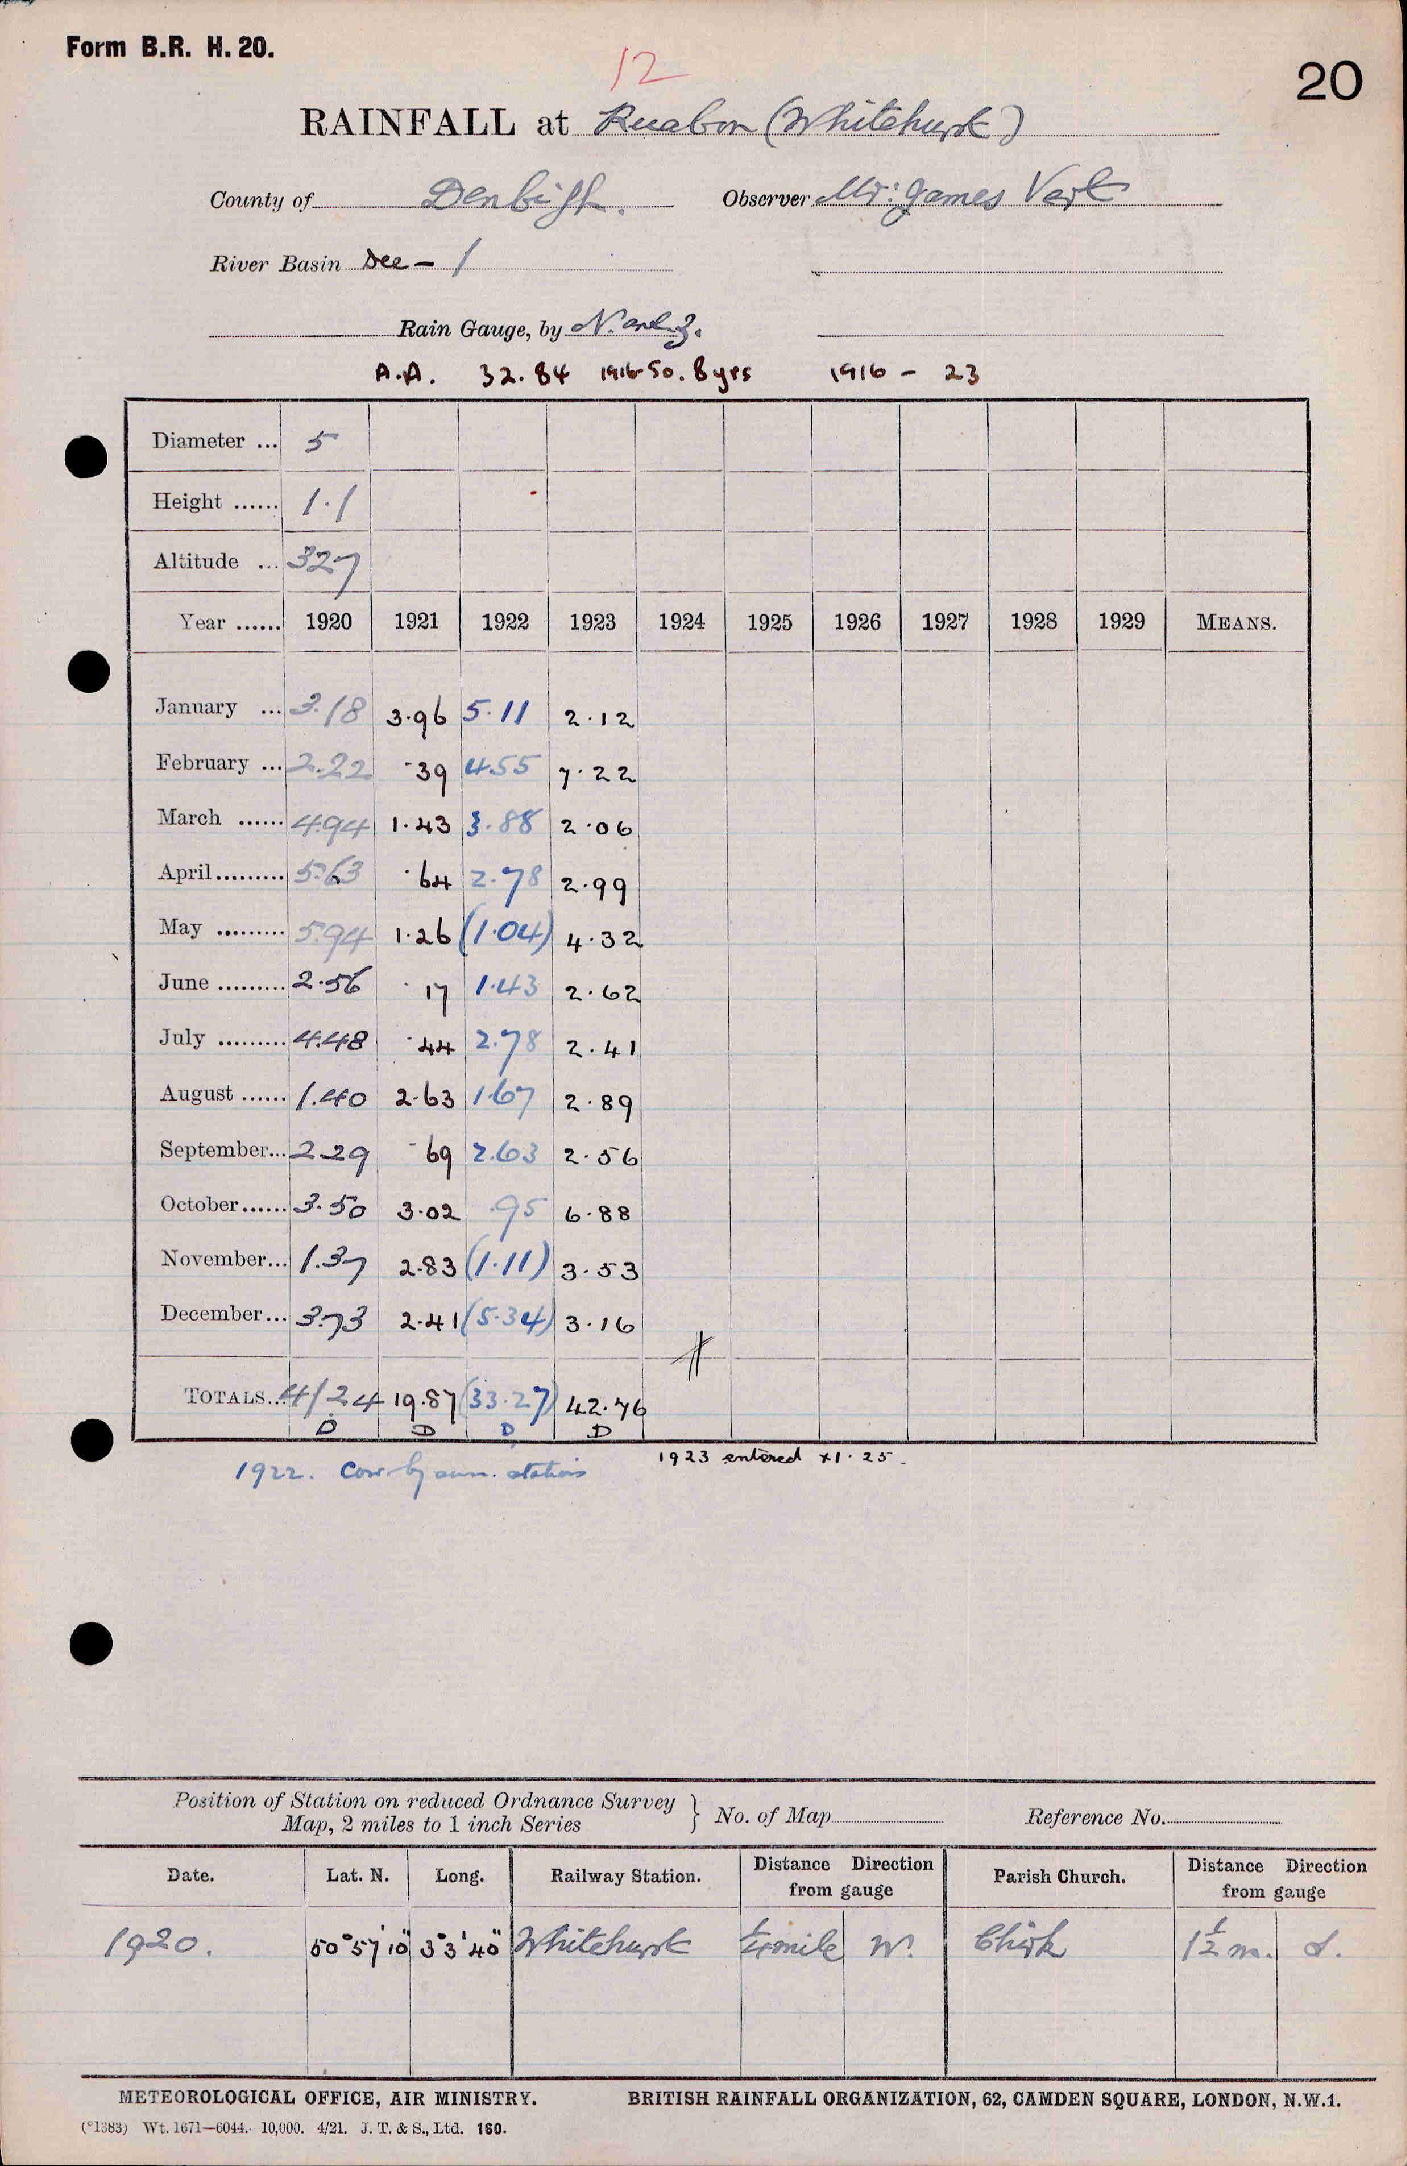 Form B.R. H. 20.
12
20
RAINFALL at Ruabon (Whitehurst)
County of Denbigh. Observer Mr: James Vert
River Basin Dee - 1
Rain Gauge, by N. and Z.
A.A. 32.84 1916-50. 8 yrs 1916 - 23
Diameter ... 5
Height ...... 1.1
Altitude ... 327
Year ...... 1920 1921 1922 1923 1924 1925 1926 1927 1928 1929 MEANS.
January ... 3.18 3.96 5.11 2.12
February ... 2.22 .39 4.55 7.22
March ...... 4.94 1.43 3.88 2.06
April ......... 5.63 .64 2.78 2.99
May ......... 5.94 1.26 (1.04) 4.32
June ......... 2.56 .17 1.43 2.62
July ......... 4.48 .44 2.78 2.41
August ...... 1.40 2.63 1.67 2.89
September... 2.29 .69 2.63 2.56
October...... 3.50 3.02 .95 6.88
November... 1.37 2.83 (1.11) 3.53
December... 3.73 2.41 (5.34) 3.16
TOTALS... 41.24 19.87 (33.27) 42.76
D D D D
1922. Corr. by surr. stations
1923 entered x 1.25.
Position of Station on reduced Ordnance Survey
Map, 2 miles to 1 inch Series } No. of Map Reference No.
Date. Lat. N. Long. Railway Station. Distance Direction from gauge Parish Church. Distance Direction from gauge
1920. 50°57'10" 3°3'40" Whitehurst 1/4 mile W. Chirk 1 1/2 m. S.
METEOROLOGICAL OFFICE, AIR MINISTRY. BRITISH RAINFALL ORGANIZATION, 62, CAMDEN SQUARE, LONDON, N.W.1.
(*1383) Wt. 1671—6044. 10,000. 4/21. J. T. & S., Ltd. 160.